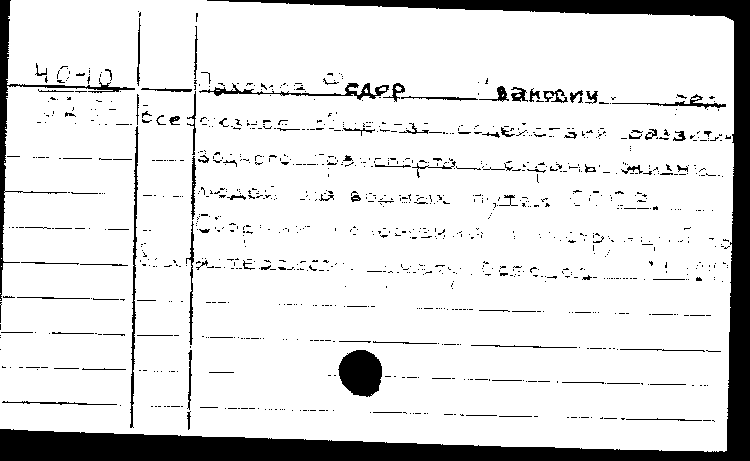 40-10
Пахомов Федор Иванович, ред.
Всесоюзное общество содействия развитию
водного транспорта и охраны жизни
людей на водных путях СССР.
Сборник положений и инструкций по
бухгалтерскому учету Осводов М 1940